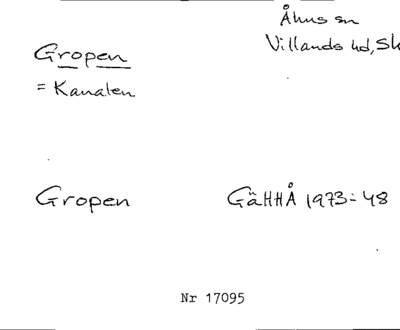 Åhus sn
Villands hd, Sk
Gropen
= Kanalen
Gropen GäHHÅ 1973:48
Nr 17095